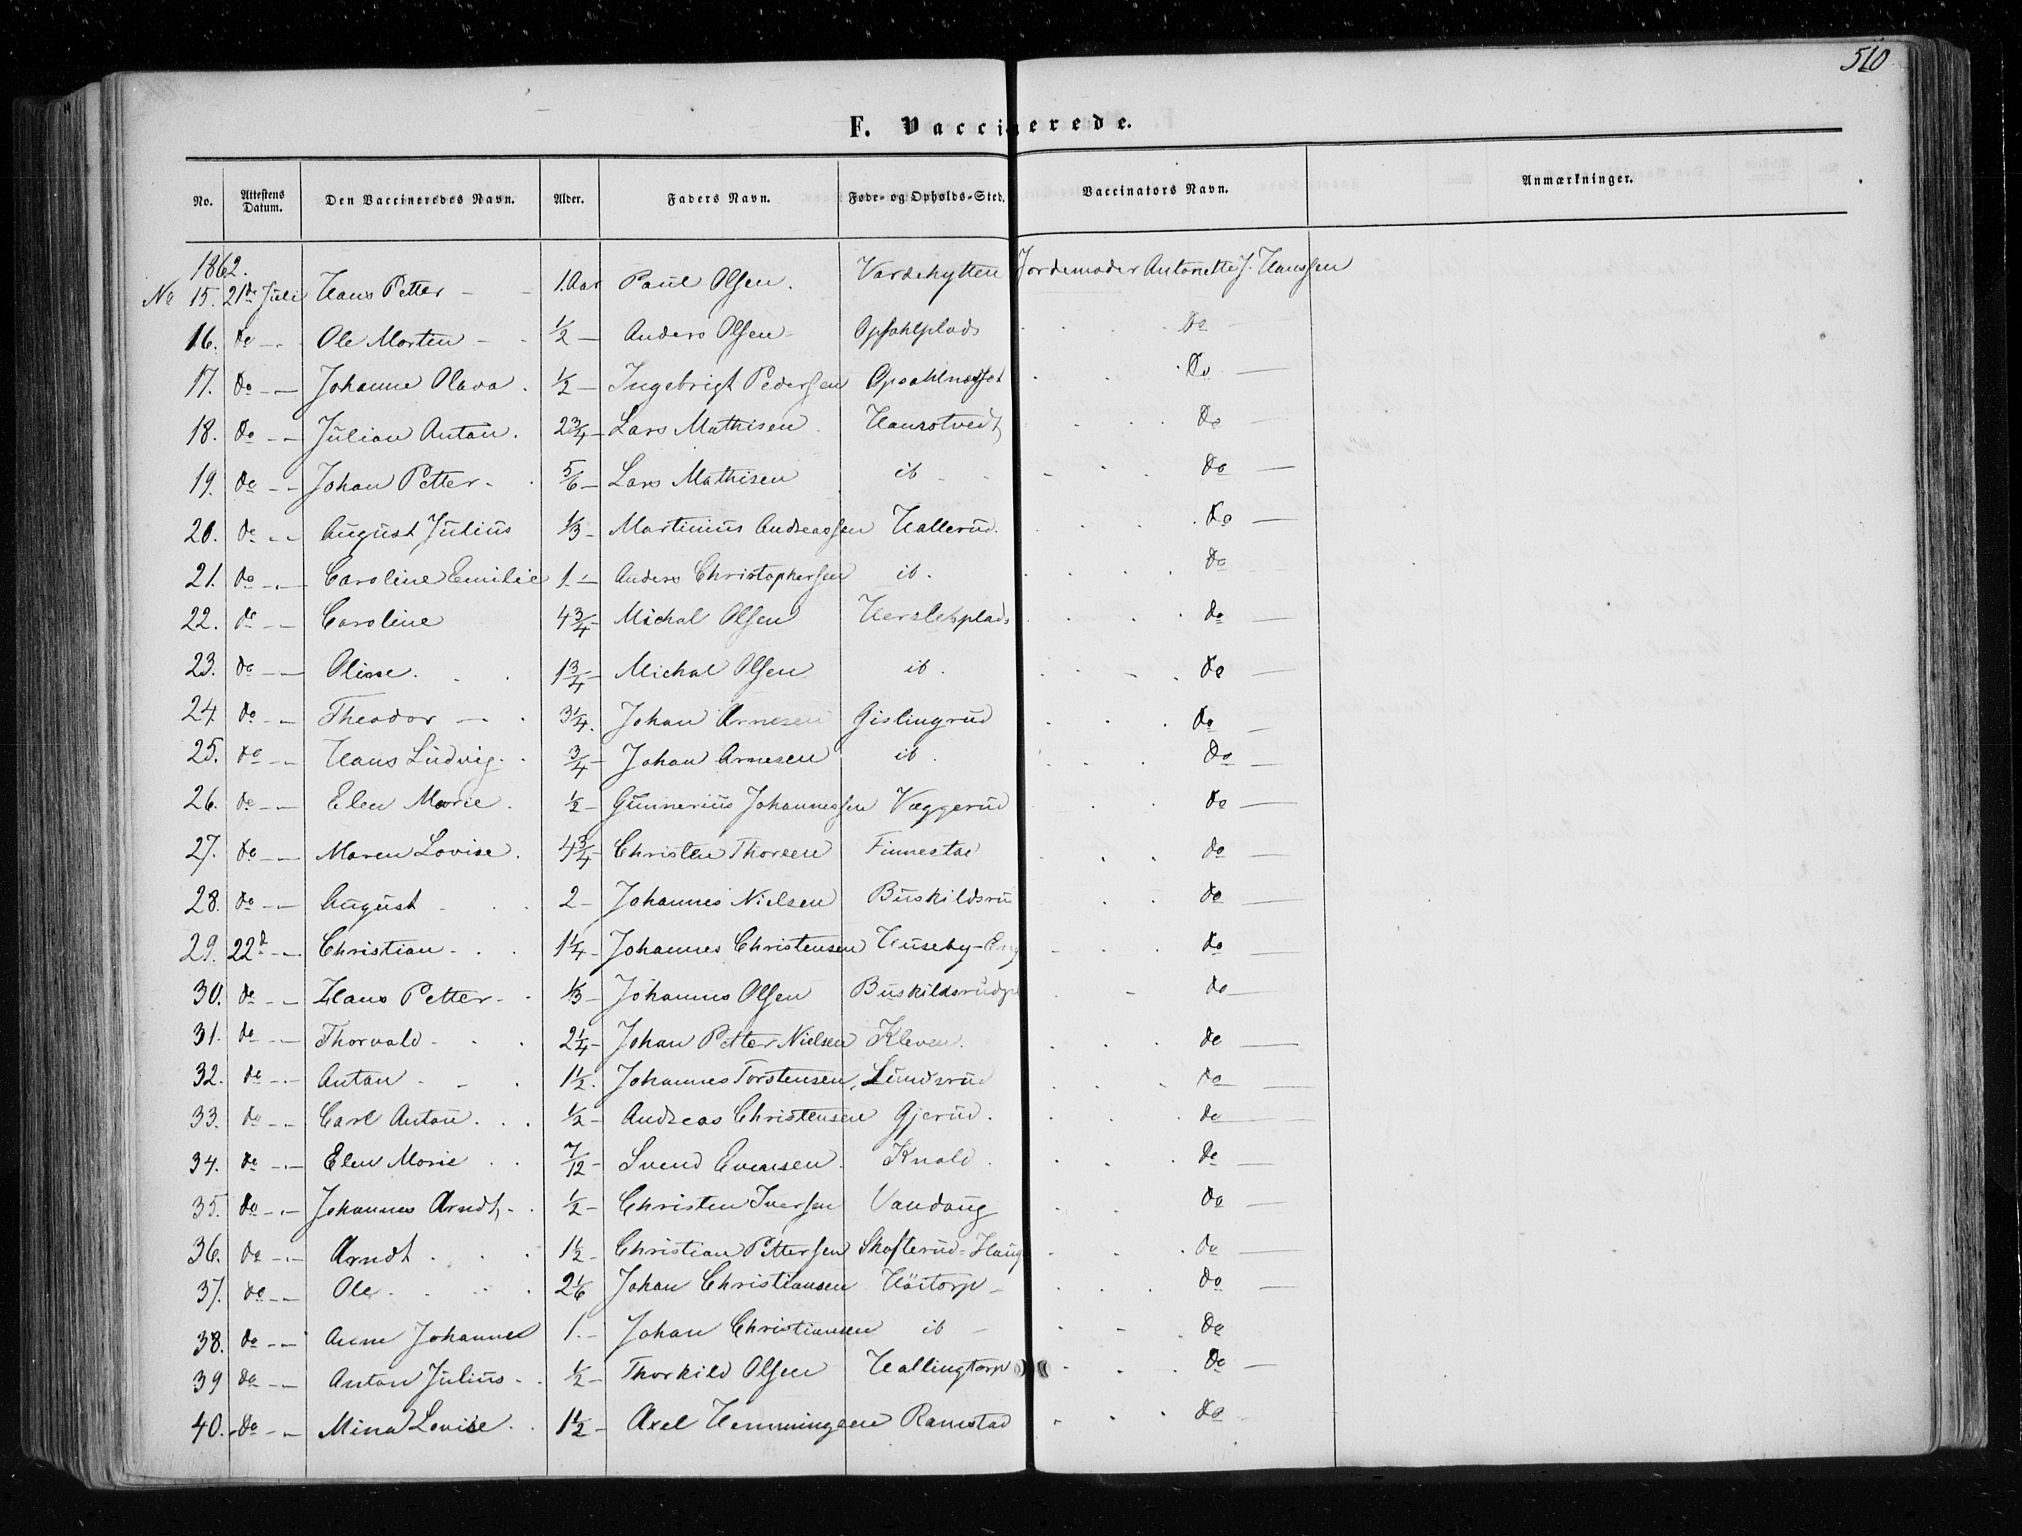 510
F. Vaccinerede.
No. Attestens Datum. Den Vaccineredes Navn. Alder. Faders Navn. Føde- og Opholds-Sted. Vaccinators Navn. Anmærkninger.
1862.
No 15. 21de Juli Hans Petter - - 1. Aar Paul Olsen. Vardehytten Jordemoder Antonette J. Hanssen
16. do - - Ole Morten - - 1/2 - Anders Olsen - Opsahlplads do -
17. do - - Johanne Olava . 1/2 - Ingebrigt Pedersen Opsahlnæsset do -
18. do - - Julian Anton . 2 3/4 - Lars Mathisen . Haurstvedt do -
19. do - - Johan Petter - . 5/6 - Lars Mathisen ib - - do -
20. do - - August Julius 1/3 - Martinius Andreassen Hallerud. do -
21. do - - Caroline Emilie 1. - Anders Christophersen ib. do
22. do - - Caroline 4 3/4 - Michal Olsen Herslebplads do -
23. do - - Olisse. . . 1 3/4 - Michal Olsen ib. do -
24. do - - Theodor - . 3 1/4. Johan Arnesen Gislingrud do -
25. do - - Hans Ludvig . . 3/4 - Johan Arnesen ib . do -
26. do - - Elen Marie . 1/2 - Gunnerius Johannessen Væggerud do -
27. do - - Maren Lovise . 4 3/4 - Christen Thoresen Finnestad do -
28. do - - August - . . 2 - Johannes Nielsen Buskildsru do -
29. 22d - - Christian - . . 1 1/4 - Johannes Christensen Huseby-Eng do -
30. do - - Hans Petter - . 1/3 - Johannes Olsen Buskildsrudpl do -
31. do - - Thorvald - . . 2 1/4 - Johan Petter Nielsen Kleven. do -
32. do - - Anton . - . 1 1/2. Johannes Torstensen, Lundsrud do -
33. do - - Carl Anton . . . 1/2 - Andreas Christensen Gjerud. do -
34. do - - Elen Marie . . 7/12 - Svend Evensen . Knold . do -
35. do - - Johannes Arndt, - . 1/2 - Christen Iversen Vandaug do -
36. do - - Arndt . . . 1 1/2 - Christian Pettersen Skofterud-Haug do -
37. do - - Ole . . . . 2 1/6 Johan Christiansen Höitorp - do -
38. do - - Anne Johannes 1. - Johan Christiansen ib - do -
39 do - - Anton Julius - . 1/2 - Thorkild Olsen Hallingtorp do -
40. do - - Mina Lovise . . 1 1/2 - Axel Hemmingsen Ramstad do -